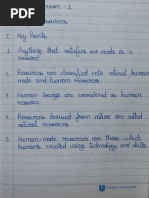 Lesson - 1
Resources
I. Key Points
1. Anything that satisfies our needs is a
resource.
2. Resources are classified into natural, human
made and human resources.
3. Human beings are considered as human
resource.
4. Resources derived from nature are called
natural resources.
5. Human-made resources are those which
humans created using technology and skills.